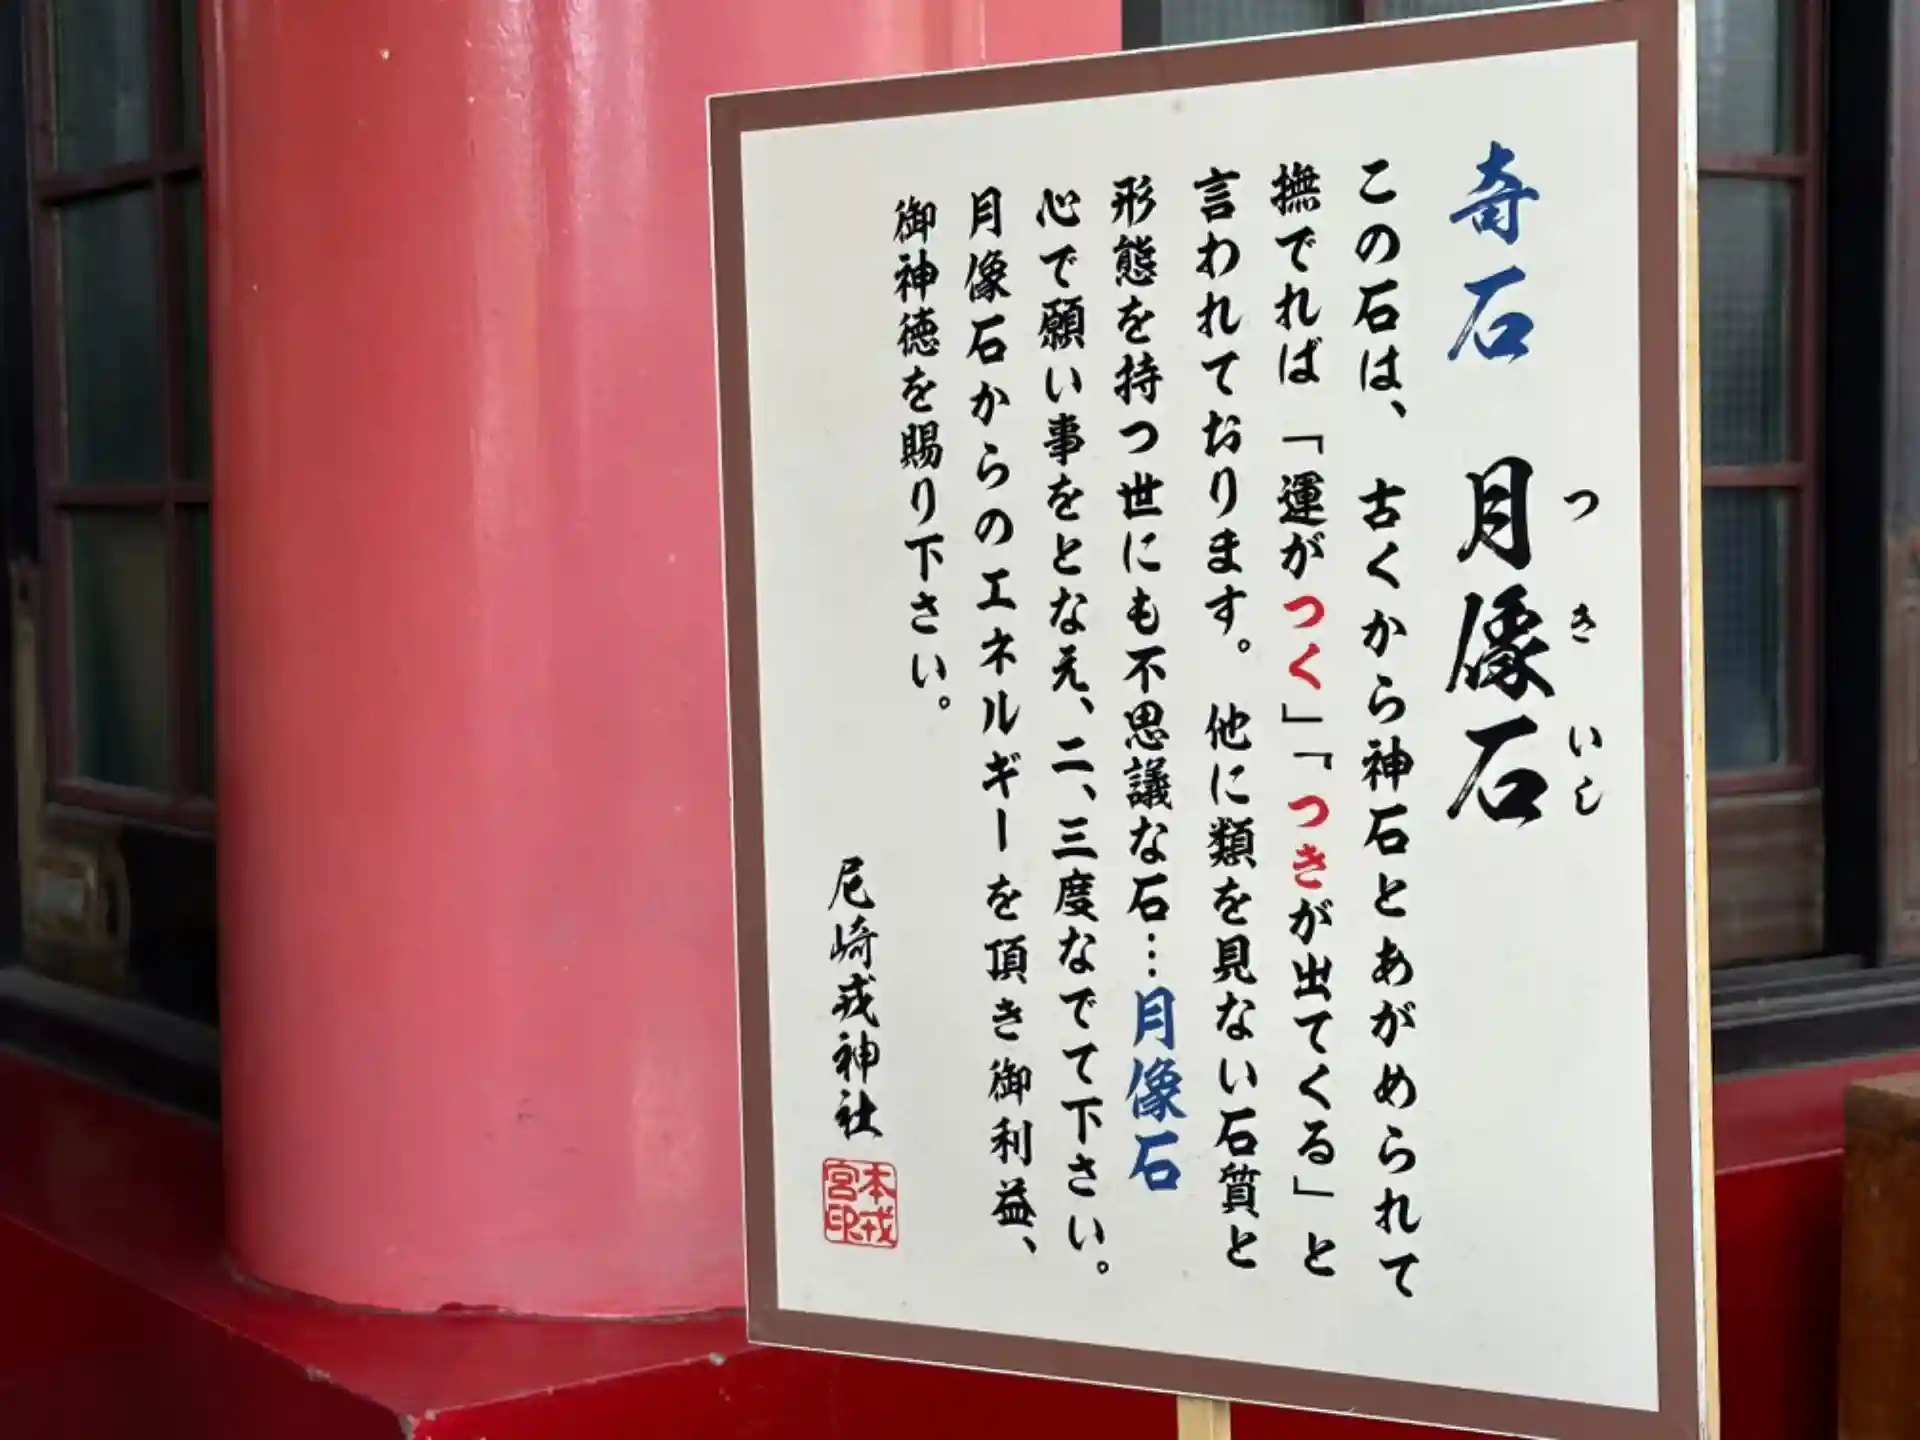 奇石 月像石
つきいし
この石は、古くから神石とあがめられて
撫でれば「運がつく」「つきが出てくる」と
言われております。他に類を見ない石質と
形態を持つ世にも不思議な石…月像石
心で願い事をとなえ、二、三度なでて下さい。
月像石からのエネルギーを頂き御利益、
御神徳を賜り下さい。
尼崎戎神社
本戎
宮印